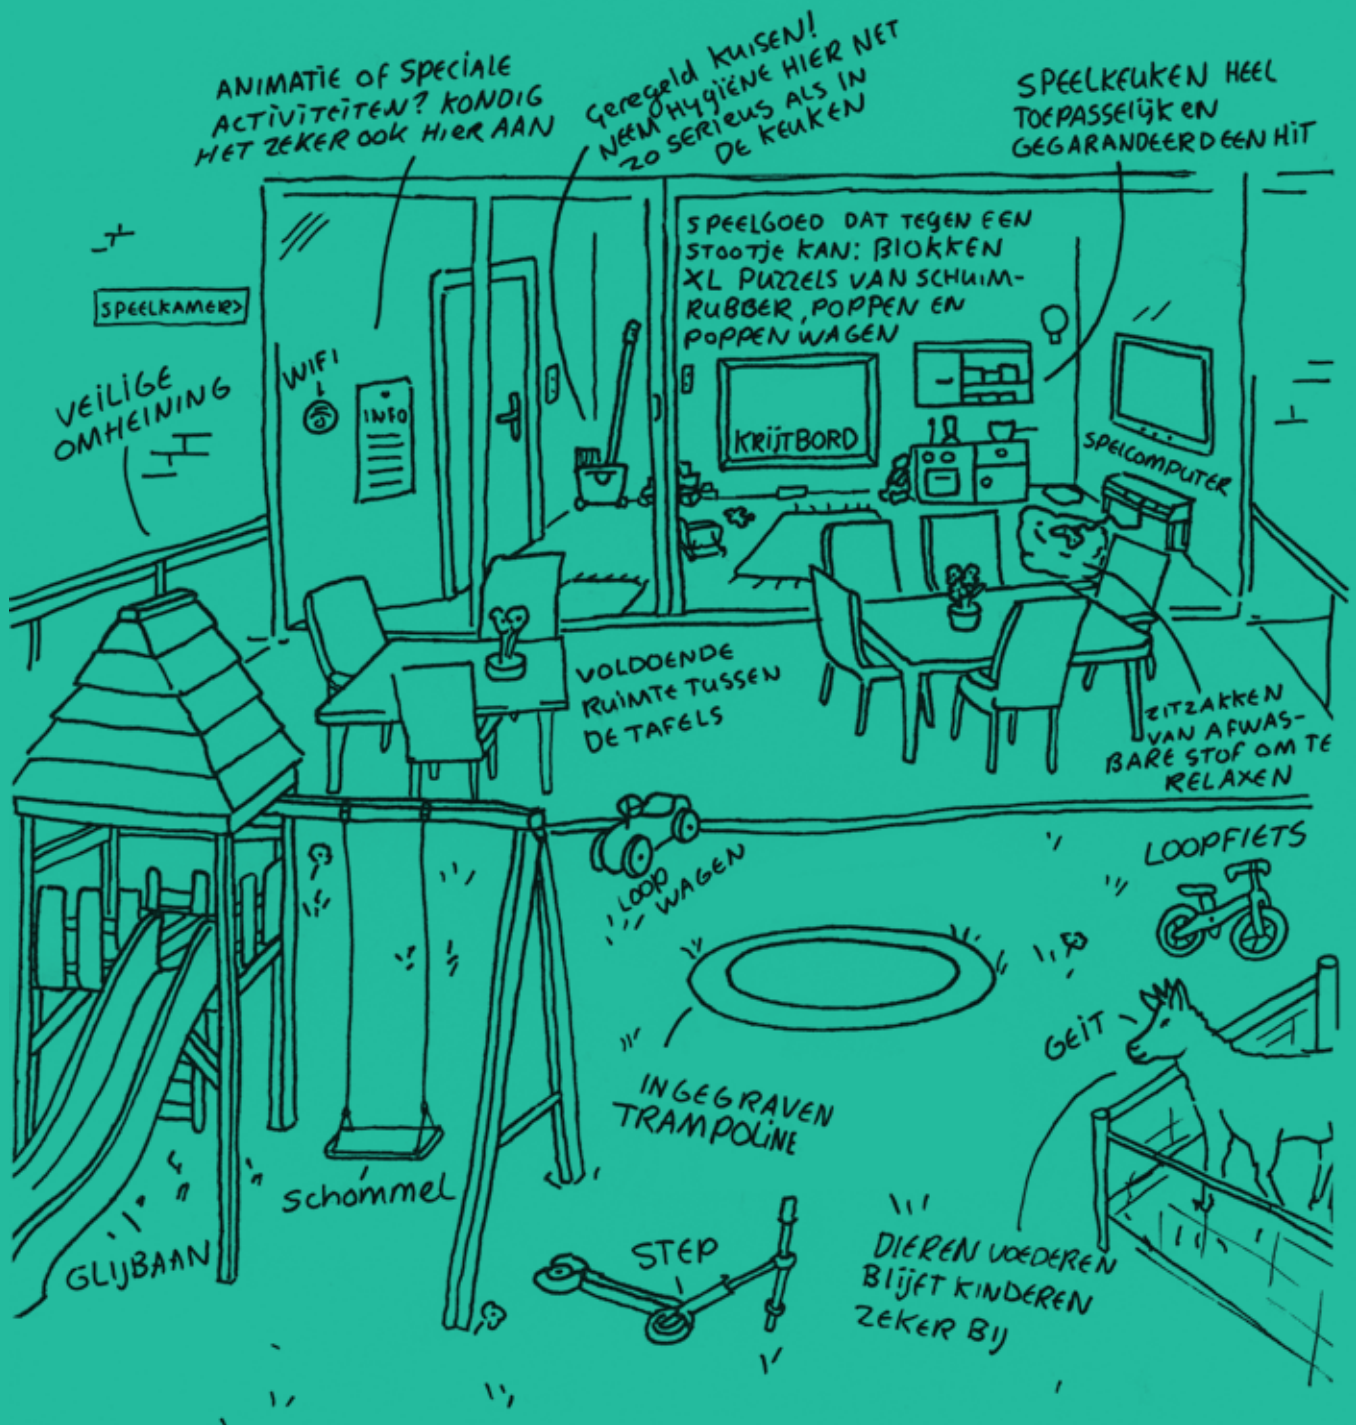 ANIMATIE OF SPECIALE
ACTIVITEITEN? KONDIG
HET ZEKER OOK HIER AAN
Geregeld KUISEN!
NEEM HYGIËNE HIER NET
ZO SERIEUS ALS IN
DE KEUKEN
SPEELKEUKEN HEEL
TOEPASSELIJK EN
GEGARANDEERD EEN HIT
SPEELGOED DAT TEGEN EEN
STOOTJE KAN: BLOKKEN
XL PUZZELS VAN SCHUIM-
RUBBER, POPPEN EN
POPPEN WAGEN
SPEELKAMER>
VEILIGE
OMHEINING
WIFI
INFO
KRIJTBORD
SPELCOMPUTER
VOLDOENDE
RUIMTE TUSSEN
DE TAFELS
ZITZAKKEN
VAN AFWAS-
BARE STOF OM TE
RELAXEN
LOOP
WAGEN
LOOPFIETS
GEIT
INGEGRAVEN
TRAMPOLINE
SCHOMMEL
GLIJBAAN
STEP
DIEREN VOEDEREN
BLIJFT KINDEREN
ZEKER BIJ